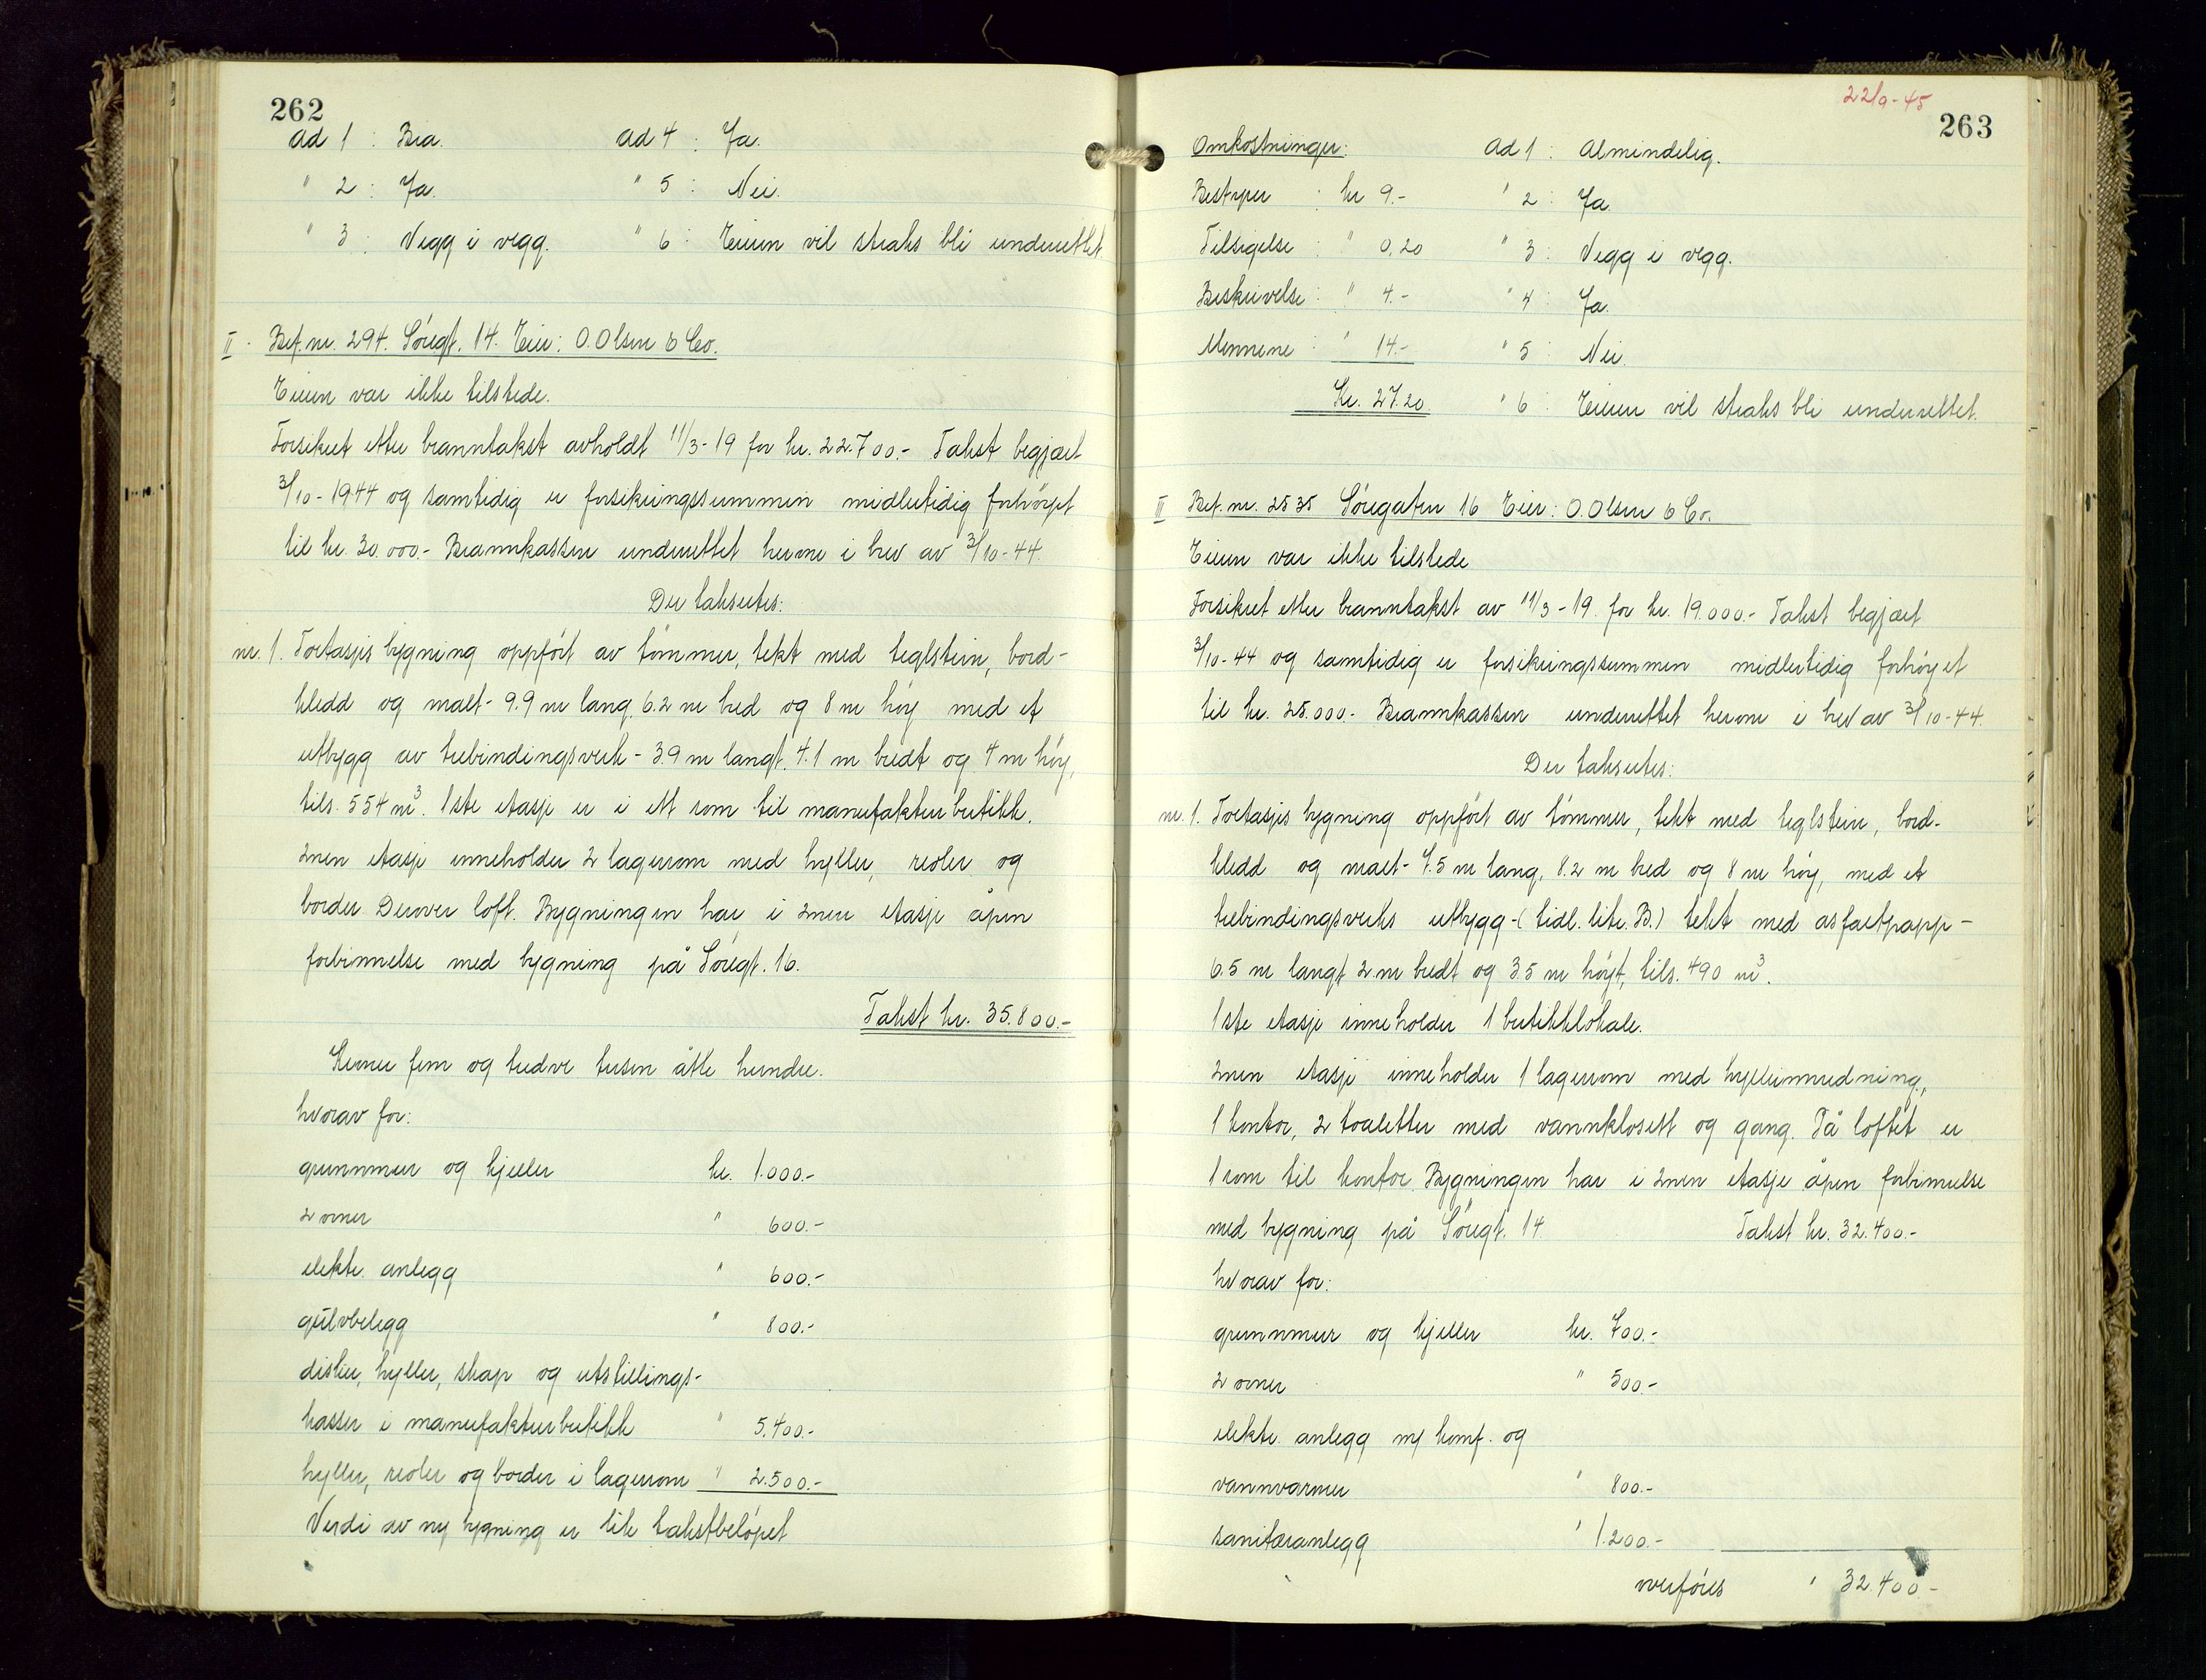 262
Ad 1 : Bra. Ad 4 : Ja.
" 2 : Ja. " 5 : Nei.
" 3 : Vegg i vegg. " 6 : Eieren vil straks bli underrettet.
II. Bef. nr. 294. Söregt. 14. Eier: O. Olsen & Co.
Eieren var ikke tilstede.
Forsikret etter branntakst avholdt 11/3-19 for kr. 22.700.- Takst begjært
3/10-1944 og samtidig er forsikringssummen midlertidig forhöyet
til kr. 30.000.- Brannkassen underrettet herom i brev av 3/10-44.
Der takseres:
nr. 1. Toetasjes bygning oppfört av tömmer, tekt med teglstein, bord-
kledd og malt - 9.9 m lang, 6.2 m bred og 8 m höy med et
utbygg av trebindingsverk - 3.9 m langt, 4.1 m bredt og 4 m höy,
tils. 554 m³. 1ste etasje er i ett rom til manufakturbutikk.
2nen etasje inneholder 2 lagerrom med hyller, reoler og
border. Derover loft. Bygningen har i 2nen etasje åpen
forbinnelse med bygning på Söregt. 16.
Takst kr. 35.800.-
Kroner fem og tredve tusen åtte hundre.
hvorav for:
grunnmur og kjeller kr. 1.000.-
2 ovner " 600.-
elektr. anlegg " 600.-
gulvbelegg " 800.-
disker, hyller, skap og utstillings-
kasser i manufakturbutikk " 5.400.-
hyller, reoler og border i lagerrom " 2.500.-
Verdi av ny bygning er lik takstbelöpet
22/9-45
263
Omkostninger: Ad 1 : Almindelig.
Bestyrer : kr 9.- " 2 : Ja.
Tilsigelse : " 0,20 " 3 : Vegg i vegg.
Beskrivelse : " 4.- " 4 : Ja.
Mennene : " 14.- " 5 : Nei.
Kr. 27.20. " 6 : Eieren vil straks bli underrettet.
II Bef. nr. 2535 Söregaten 16 Eier: O. Olsen & Co.
Eieren var ikke tilstede
Forsikret etter branntakst av 11/3-19. for kr. 19.000.- Takst begjært
3/10-44 og samtidig er forsikringssummen midlertidig forhöyet
til kr. 25.000.- Brannkassen underrettet herom i brev av 3/10-44.
Der takseres:
nr. 1. Toetasjes bygning oppfört av tömmer, tekt med teglstein, bord-
kledd og malt - 7.5 m lang, 8.2 m bred og 8 m höy, med et
trebindingsverks utbygg - (tidl. litr. B.) tekt med asfaltpapp -
6.5 m langt 2 m bredt og 3.5 m höyt, tils. 490 m³.
1ste etasje inneholder 1 butikklokale.
2nen etasje inneholder 1 lagerrom med hylleinnredning,
1 kontor, 2 toaletter med vannklosett og gang. På loftet er
1 rom til kontor. Bygningen har i 2nen etasje åpen forbinnelse
med bygning på Söregt. 14 Takst kr. 32.400.-
hvorav for:
grunnmur og kjeller kr. 700.-
2 ovner " 500.-
elektr. anlegg m/ komf. og
vannvarmer " 800.-
sanitæranlegg " 1.200.-
overföres " 32.400.-